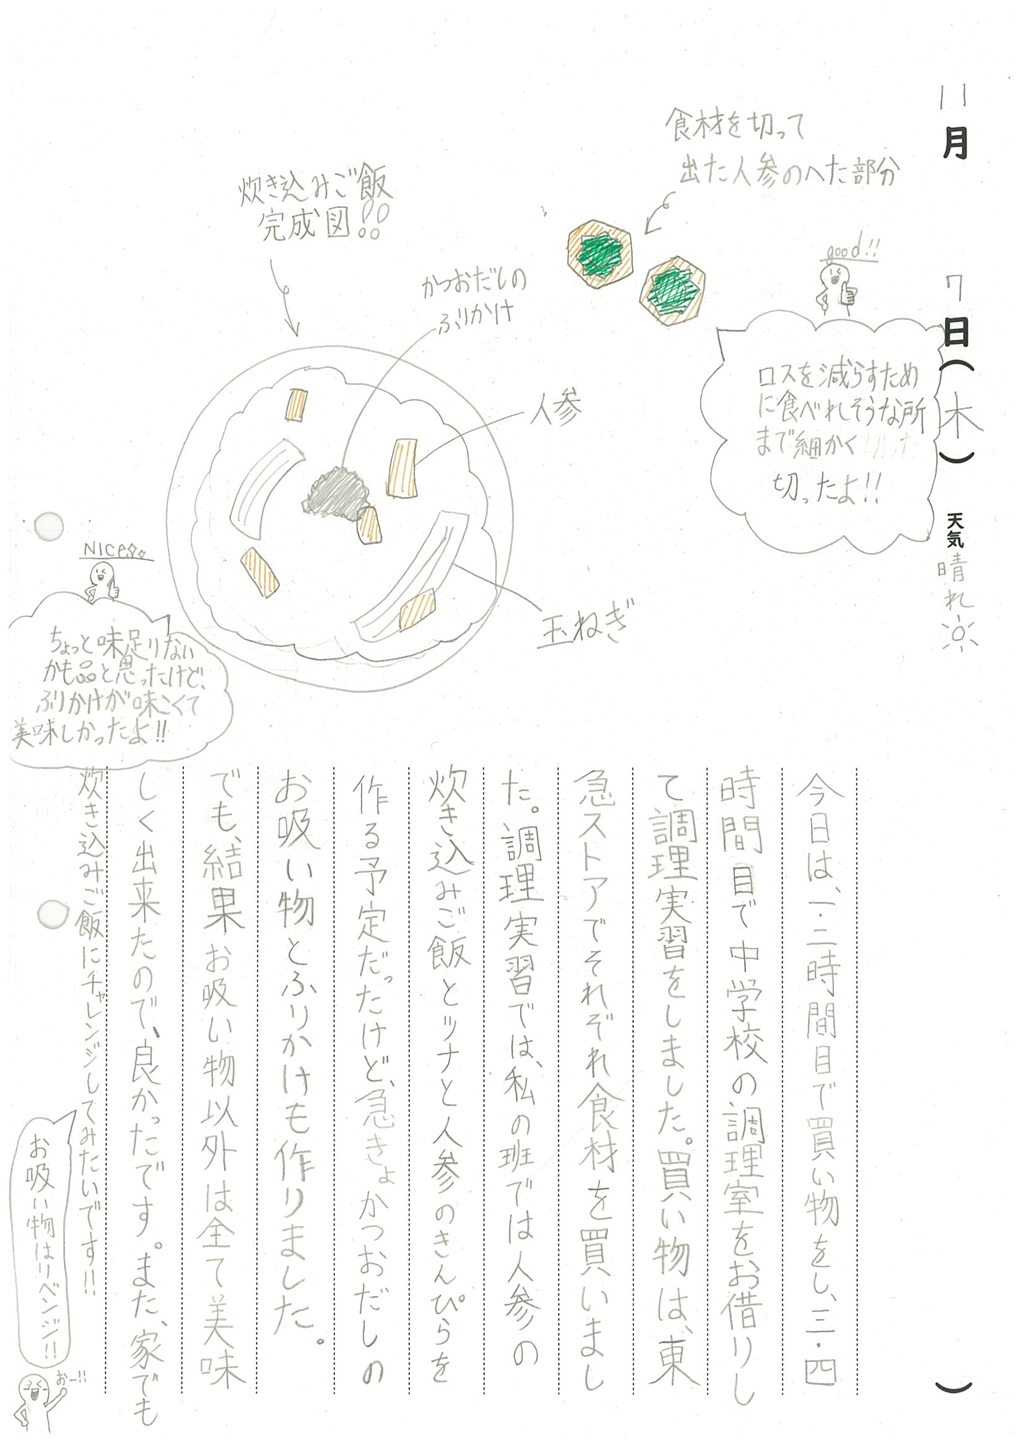 11月7日(木)天気 晴れ
食材を切って
出た人参のへた部分
good!!
ロスを減らすため
に食べれそうな所
まで細かく
切ったよ!!
炊き込みご飯
完成図!!
かつおだしの
ふりかけ
人参
玉ねぎ
NICE
ちょっと味足りない
かも品と思ったけど、
ふりかけが味こくて
美味しかったよ!!
今日は、一・二時間目で買い物をし、三・四
時間目で中学校の調理室をお借りし
て調理実習をしました。買い物は、東
急ストアでそれぞれ食材を買いまし
た。調理実習では、私の班では人参の
炊き込みご飯とツナと人参のきんぴらを
作る予定だったけど、急きょかつおだしの
お吸い物とふりかけも作りました。
でも、結果お吸い物以外は全て美味
しく出来たので、良かったです。また、家でも
炊き込みご飯にチャレンジしてみたいです!!
お吸い物はリベンジ!!
おー!!
)